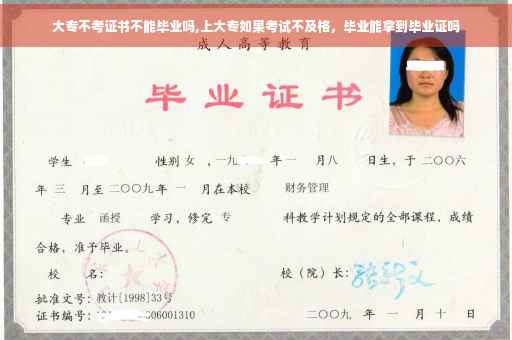 大专不考证书不能毕业吗,上大专如果考试不及格，毕业能拿到毕业证吗
成人高等教育
毕业证书
学生 性别 女 ，一九 年 一 月八 日生，于 二〇〇六
年 三 月至 二〇〇九 年 一 月在本校 财务管理
专业 函授 学习，修完 专 科教学计划规定的全部课程，成绩
合格，准予毕业。
校 名： 校（院）长：
批准文号：教计[1998]33号
证书编号： 06001310 二〇〇九 年 一 月 十 日